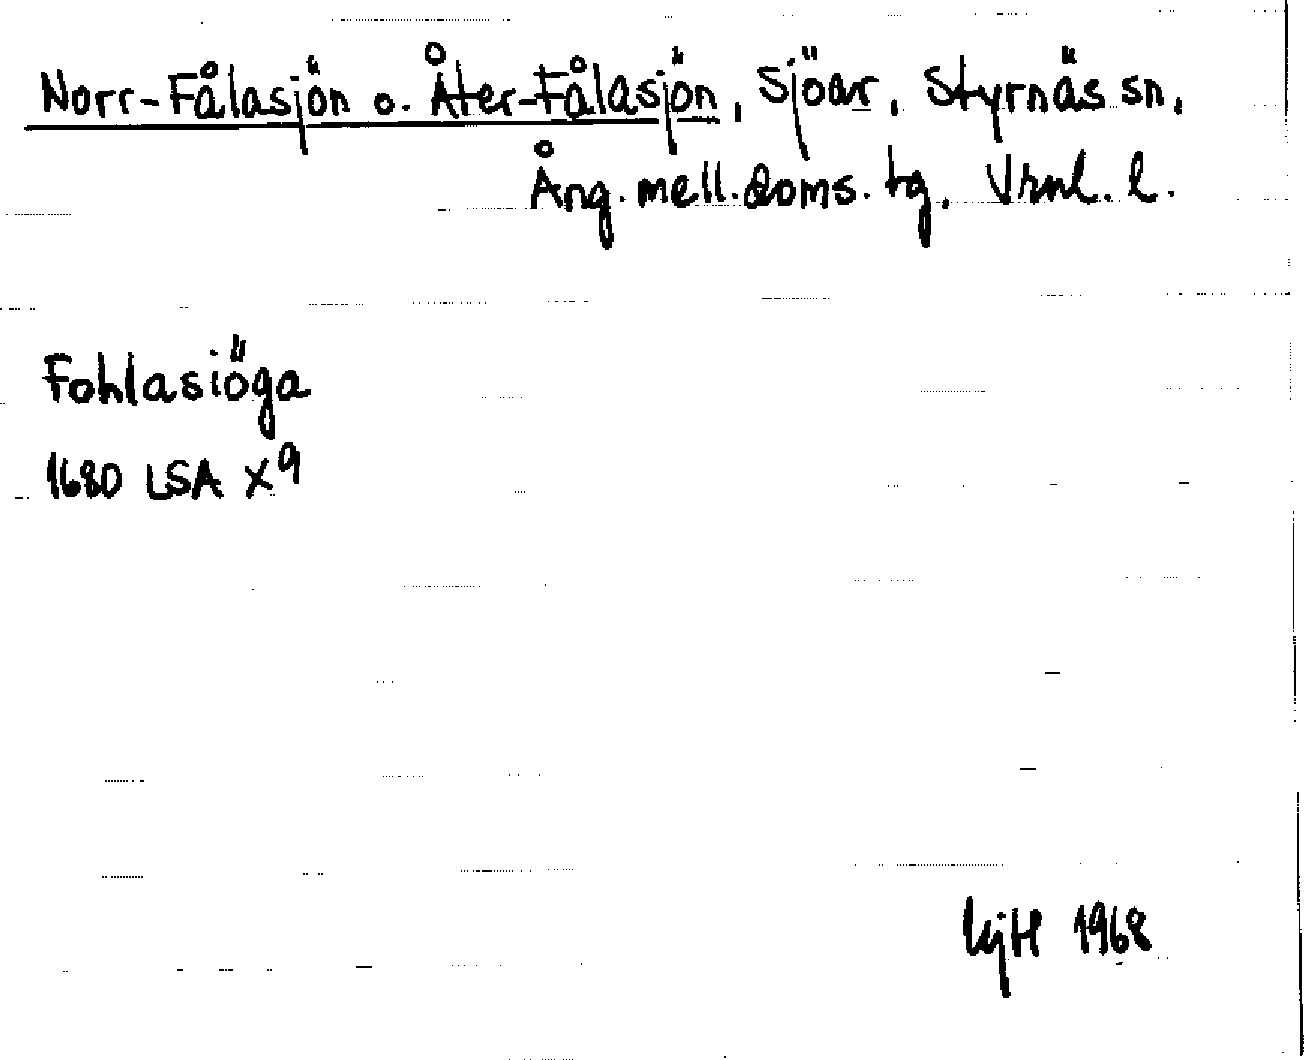 Norr-Fålasjön o. Åter-Fålasjön, sjöar, Styrnäs sn,
Ång. mell. doms. tg. Vrnl. l.
Fohlasiöga
1680 LSA X9
1968